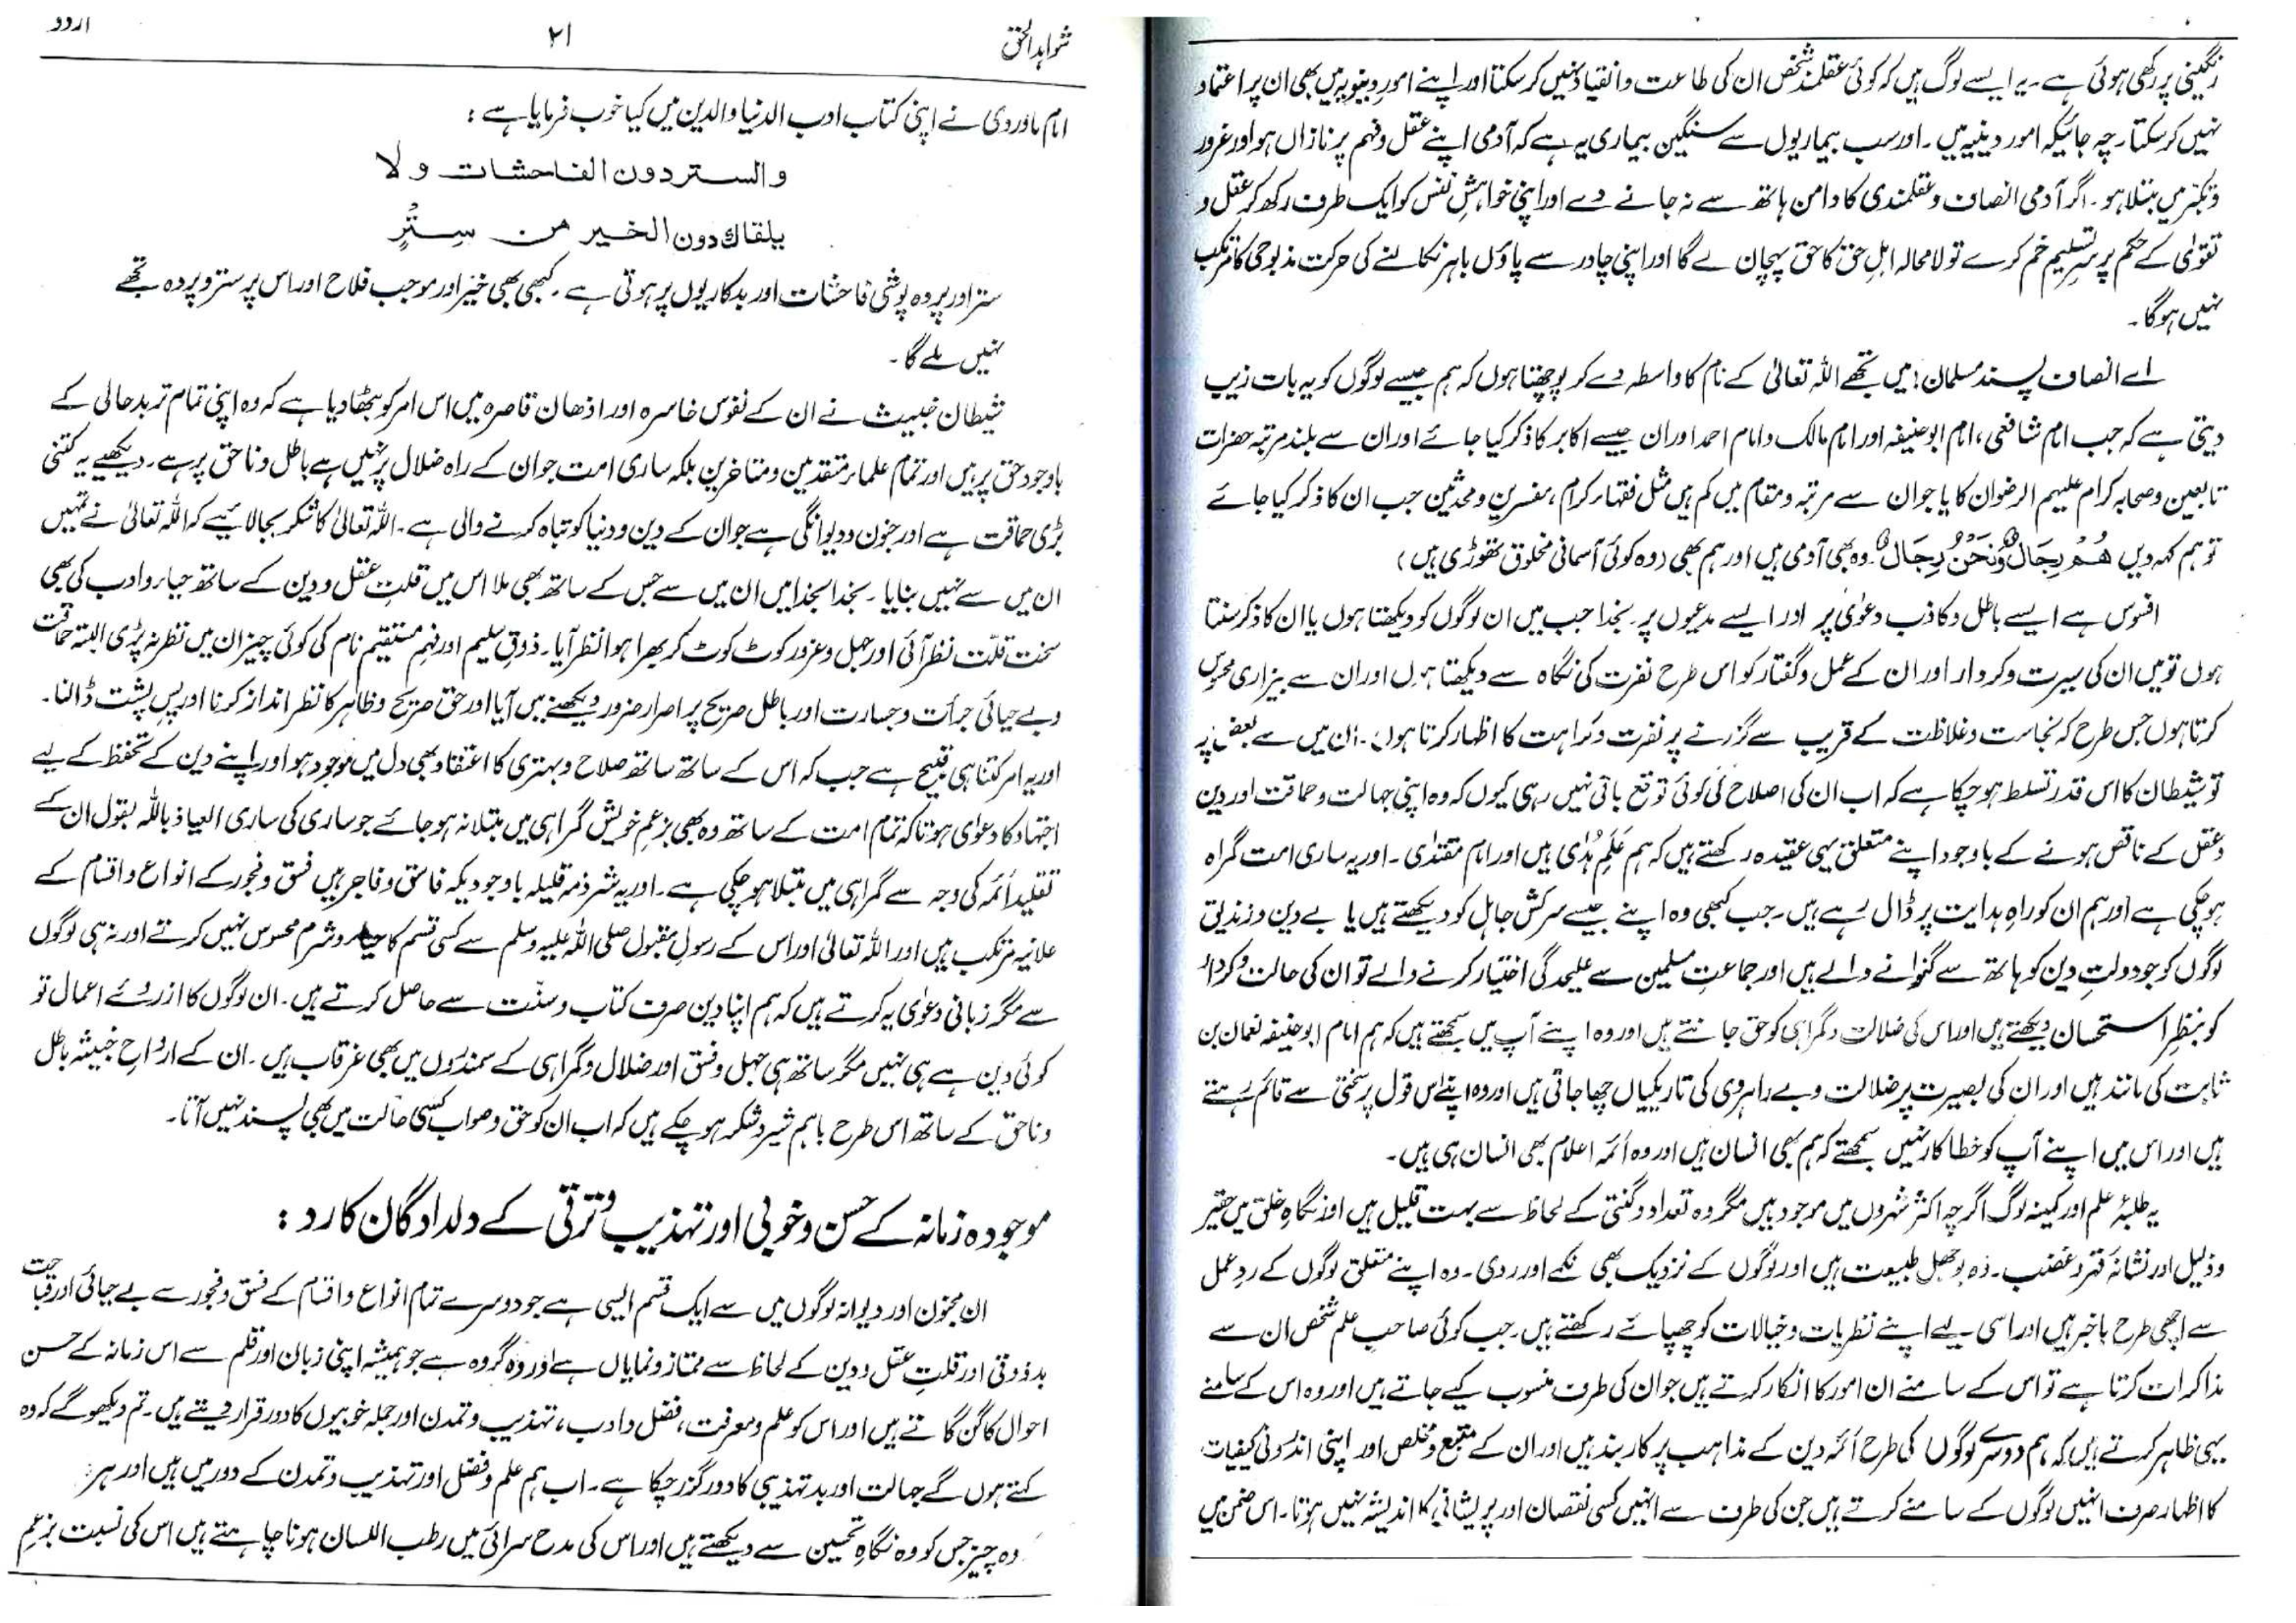 رنگینی پر رکھی ہوئی ہے۔ یہ ایسے لوگ ہیں کہ کوئی عقلمند شخص ان کی طاعت و انقیاد نہیں کر سکتا اور اپنے امور دنیویہ میں بھی ان پر اعتماد
نہیں کر سکتا۔ چہ جائیکہ امور دینیہ میں۔ اور سب بیماریوں سے سنگین بیماری یہ ہے کہ آدمی اپنے عقل و فہم پر نازاں ہو اور غرور
و تکبر میں مبتلا ہو۔ اگر آدمی انصاف و عقلمندی کا دامن ہاتھ سے نہ جانے دے اور اپنی خواہشِ نفس کو ایک طرف رکھ کر عقل و
تقویٰ کے حکم پر سرِ تسلیم خم کرے تو لامحالہ اہلِ حق کا حق پہچان لے گا اور اپنی چادر سے پاؤں باہر نکالنے کی حرکت مذبوحی کا مرتکب
نہیں ہوگا۔
اے انصاف پسند مسلمان! میں تجھے اللہ تعالیٰ کے نام کا واسطہ دے کر پوچھتا ہوں کہ ہم جیسے لوگوں کو یہ بات زیب
دیتی ہے کہ جب امام شافعی، امام ابوحنیفہ اور امام مالک و امام احمد اور ان جیسے اکابر کا ذکر کیا جائے اور ان سے بلند مرتبہ حضرات
تابعین و صحابہ کرام علیہم الرضوان کا یا جو ان سے مرتبہ و مقام میں کم ہیں مثل فقہاء کرام، مفسرین و محدثین جب ان کا ذکر کیا جائے
تو ہم کہہ دیں ھُمْ رِجَالٌ وَنَحْنُ رِجَالٌ۔ وہ بھی آدمی ہیں اور ہم بھی (وہ کوئی آسمانی مخلوق تھوڑی ہیں)
افسوس ہے ایسے باطل و کاذب دعویٰ پر اور ایسے مدعیوں پر۔ بخدا جب میں ان لوگوں کو دیکھتا ہوں یا ان کا ذکر سنتا
ہوں تو میں ان کی سیرت و کردار اور ان کے عمل و گفتار کو اس طرح نفرت کی نگاہ سے دیکھتا ہوں اور ان سے بیزاری محسوس
کرتا ہوں جس طرح کہ نجاست و غلاظت کے قریب سے گزرنے پر نفرت و کراہت کا اظہار کرتا ہوں۔ ان میں سے بعض پہ
تو شیطان کا اس قدر تسلط ہو چکا ہے کہ اب ان کی اصلاح کی کوئی توقع باقی نہیں رہی کیوں کہ وہ اپنی جہالت و حماقت اور دین
و عقل کے ناقص ہونے کے باوجود اپنے متعلق یہی عقیدہ رکھتے ہیں کہ ہم عَلَمِ ہُدٰی ہیں اور امام مقتدٰی۔ اور یہ ساری امت گمراہ
ہو چکی ہے اور ہم ان کو راہِ ہدایت پر ڈال رہے ہیں۔ جب کبھی وہ اپنے جیسے سرکش جاہل کو دیکھتے ہیں یا بے دین و زندیق
لوگوں کو جو دولتِ دین کو ہاتھ سے گنوانے والے ہیں اور جماعتِ مسلمین سے علیحدگی اختیار کرنے والے تو ان کی حالت و کردار
کو بنظرِ استحسان دیکھتے ہیں اور اس کی ضلالت و گمراہی کو حق جانتے ہیں اور وہ اپنے آپ میں سمجھتے ہیں کہ ہم امام ابوحنیفہ نعمان بن
ثابت کی مانند ہیں اور ان کی بصیرت پر ضلالت و بے راہروی کی تاریکیاں چھا جاتی ہیں اور وہ اپنے اس قول پر سختی سے قائم رہتے
ہیں اور اس میں اپنے آپ کو خطا کار نہیں سمجھتے کہ ہم بھی انسان ہیں اور وہ ائمہ اعلام بھی انسان ہی ہیں۔
یہ طلبۂ علم اور کمینہ لوگ اگرچہ اکثر شہروں میں موجود ہیں مگر وہ تعداد و گنتی کے لحاظ سے بہت قلیل ہیں اور نگاہِ خلق میں حقیر
و ذلیل اور نشانۂ قہر و غضب۔ وہ بوجھل طبیعت ہیں اور لوگوں کے نزدیک بھی نکمے اور ردی۔ وہ اپنے متعلق لوگوں کے ردِ عمل
سے اچھی طرح باخبر ہیں اور اسی لیے اپنے نظریات و خیالات کو چھپائے رکھتے ہیں۔ جب کوئی صاحبِ علم شخص ان سے
مذاکرات کرتا ہے تو اس کے سامنے ان امور کا انکار کرتے ہیں جو ان کی طرف منسوب کیے جاتے ہیں اور وہ اس کے سامنے
یہی ظاہر کرتے ہیں کہ ہم دوسرے لوگوں کی طرح ائمہ دین کے مذاہب پر کاربند ہیں اور ان کے متبع و مخلص اور اپنی اندرونی کیفیات
کا اظہار صرف انہیں لوگوں کے سامنے کرتے ہیں جن کی طرف سے انہیں کسی نقصان اور پریشانی کا اندیشہ نہیں ہوتا۔ اس ضمن میں
شواہد الحق ۲۱ اردو
امام ماوردی نے اپنی کتاب ادب الدنیا والدین میں کیا خوب فرمایا ہے:
والستر دون الفاحشات ولا
یلقاك دون الخیر من سِتْرٍ
ستر اور پردہ پوشی فاحشات اور بدکاریوں پر ہوتی ہے۔ کبھی بھی خیر اور موجب فلاح اور اس پر ستر و پردہ تجھے
نہیں ملے گا۔
شیطان خبیث نے ان کے نفوس خاسرہ اور اذھان قاصرہ میں اس امر کو بٹھا دیا ہے کہ وہ اپنی تمام تر بدحالی کے
باوجود حق پر ہیں اور تمام علماء متقدمین و متاخرین بلکہ ساری امت جو ان کے راہ ضلال پر نہیں ہے باطل و ناحق پر ہے۔ دیکھیے یہ کتنی
بڑی حماقت ہے اور جنون و دیوانگی ہے جو ان کے دین و دنیا کو تباہ کرنے والی ہے۔ اللہ تعالیٰ کا شکر بجا لائیے کہ اللہ تعالیٰ نے تمہیں
ان میں سے نہیں بنایا۔ بخدا لخدا میں ان میں سے جس کے ساتھ بھی ملا اس میں قلتِ عقل و دین کے ساتھ حیاء و ادب کی بھی
سخت قلّت نظر آئی اور جہل و غرور کوٹ کوٹ کر بھرا ہوا نظر آیا۔ ذوقِ سلیم اور فہمِ مستقیم نام کی کوئی چیز ان میں نظر نہ پڑی البتہ حماقت
و بے حیائی جرأت و جسارت اور باطل صریح پر اصرار ضرور دیکھنے میں آیا اور حق صریح و ظاہر کا نظر انداز کرنا اور پسِ پشت ڈالنا۔
اور یہ امر کتنا ہی قبیح ہے جب کہ اس کے ساتھ ساتھ صلاح و بہتری کا اعتقاد بھی دل میں موجود ہو اور اپنے دین کے تحفظ کے لیے
اجتہاد کا دعویٰ ہو تاکہ تمام امت کے ساتھ وہ بھی بزعمِ خویش گمراہی میں مبتلا نہ ہو جائے جو ساری کی ساری العیاذ باللہ بقول ان کے
تقلیدِ ائمہ کی وجہ سے گمراہی میں مبتلا ہو چکی ہے۔ اور یہ شرذمہ قلیلہ باوجودیکہ فاسق و فاجر ہیں فسق و فجور کے انواع و اقسام کے
علانیہ مرتکب ہیں اور اللہ تعالیٰ اور اس کے رسولِ مقبول صلی اللہ علیہ وسلم سے کسی قسم کا حیاء و شرم محسوس نہیں کرتے اور نہ ہی لوگوں
سے مگر زبانی دعویٰ یہ کرتے ہیں کہ ہم اپنا دین صرف کتاب و سنّت سے حاصل کرتے ہیں۔ ان لوگوں کا ازروئے اعمال تو
کوئی دین ہے ہی نہیں مگر ساتھ ہی جہل و فسق اور ضلال و گمراہی کے سمندروں میں بھی غرقاب ہیں۔ ان کے ارواحِ خبیثہ باطل
و ناحق کے ساتھ اس طرح باہم شیر و شکر ہو چکے ہیں کہ اب ان کو حق و صواب کسی حالت میں بھی پسند نہیں آتا۔
موجودہ زمانہ کے حسن و خوبی اور تہذیب و ترقی کے دلدادگان کا رد:
ان مجنون اور دیوانہ لوگوں میں سے ایک قسم ایسی ہے جو دوسرے تمام انواع و اقسام کے فسق و فجور سے بے حیائی اور قباحت
بد ذوقی اور قلتِ عقل و دین کے لحاظ سے ممتاز و نمایاں ہے اور وہ گروہ ہے جو ہمیشہ اپنی زبان اور قلم سے اس زمانہ کے حسن
احوال کا گن گاتے ہیں اور اس کو علم و معرفت، فضل و ادب، تہذیب و تمدن اور جملہ خوبیوں کا دور قرار دیتے ہیں۔ تم دیکھو گے کہ وہ
کہتے ہوں گے جہالت اور بدتہذیبی کا دور گزر چکا ہے۔ اب ہم علم و فضل اور تہذیب و تمدن کے دور میں ہیں اور ہر
وہ چیز جس کو وہ نگاہِ تحسین سے دیکھتے ہیں اور اس کی مدح سرائی میں رطب اللسان ہونا چاہتے ہیں اس کی نسبت بزعمِ